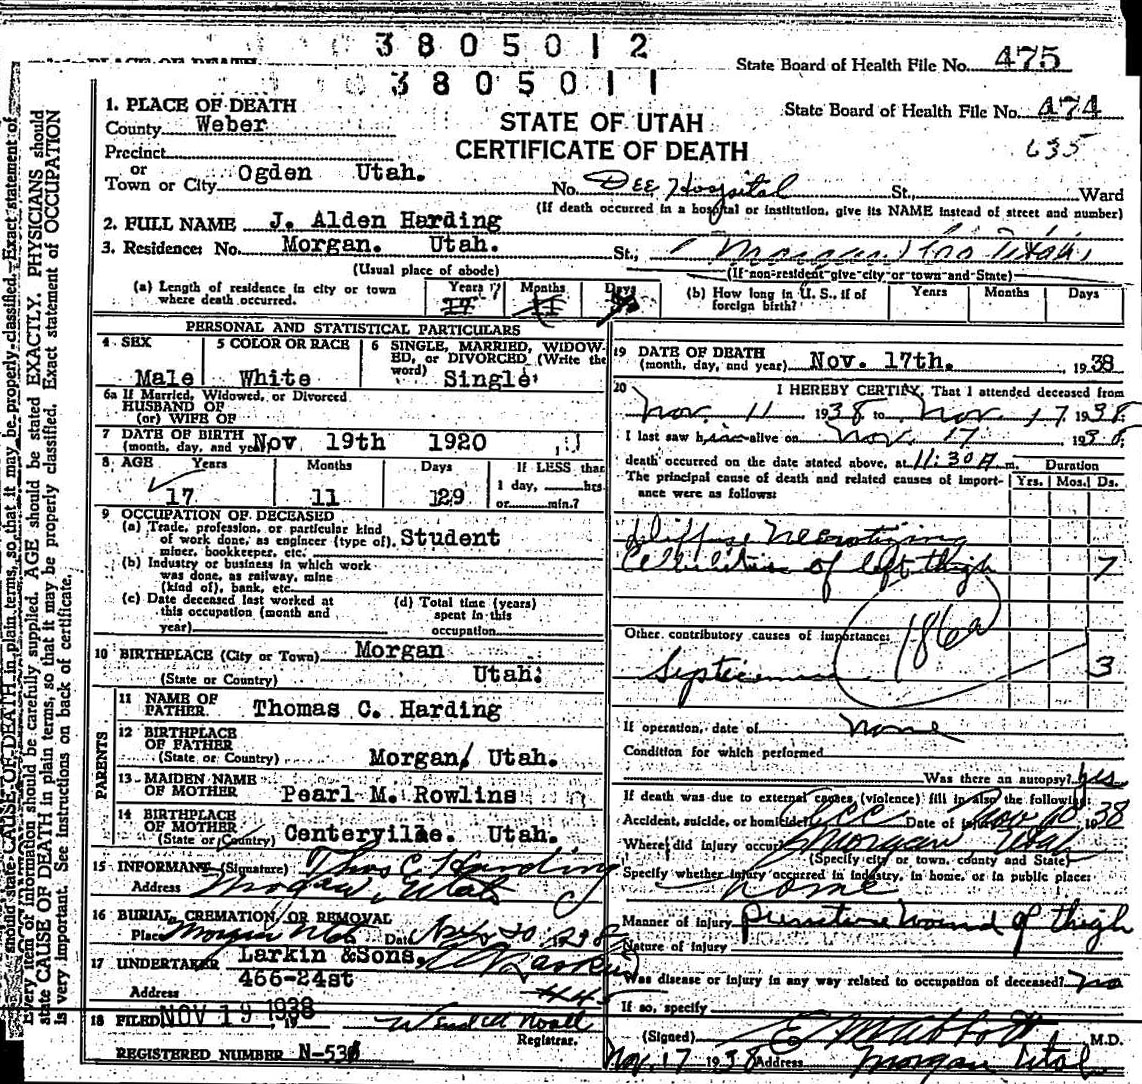 3805012
PLACE OF DEATH
State Board of Health File No. 475
3805011
State Board of Health File No. 474
635
1. PLACE OF DEATH
County Weber
STATE OF UTAH
CERTIFICATE OF DEATH
Precinct
or
Town or City Ogden Utah. No. Dee Hospital St., Ward
(If death occurred in a hospital or institution, give its NAME instead of street and number)
2. FULL NAME J. Alden Harding
3. Residence: No. Morgan. Utah. St., Morgan Utah
(Usual place of abode) (If non-resident give city or town and State)
(a) Length of residence in city or town where death occurred. Years 17 Months 11 Days
(b) How long in U. S., if of foreign birth? Years Months Days
PERSONAL AND STATISTICAL PARTICULARS
4 SEX Male
5 COLOR OR RACE White
6 SINGLE, MARRIED, WIDOWED, or DIVORCED (Write the word) Single
6a If Married, Widowed, or Divorced
HUSBAND OF
(or) WIFE OF
7 DATE OF BIRTH
(month, day, and year) Nov 19th 1920
8 AGE Years 17 Months 11 Days 29 If LESS than
1 day, hrs.
or min.?
9 OCCUPATION OF DECEASED
(a) Trade, profession, or particular kind
of work done, as engineer (type of), Student
miner, bookkeeper, etc.
(b) Industry or business in which work
was done, as railway, mine
(kind of), bank, etc.
(c) Date deceased last worked at
this occupation (month and
year)
(d) Total time (years)
spent in this
occupation
10 BIRTHPLACE (City or Town) Morgan
(State or Country) Utah.
PARENTS
11 NAME OF
FATHER Thomas C. Harding
12 BIRTHPLACE
OF FATHER
(State or Country) Morgan, Utah.
13 MAIDEN NAME
OF MOTHER Pearl M. Rowlins
14 BIRTHPLACE
OF MOTHER
(State or Country) Centerville. Utah.
15 INFORMANT (Signature) Thos C. Harding
Address Morgan, Utah
16 BURIAL, CREMATION, OR REMOVAL
Place Morgan Utah Date Nov 20 1938
17 UNDERTAKER Larkin & Sons,
466-24st
Address
18 FILED NOV 19 1938, 19
Registrar.
REGISTERED NUMBER N-536
19 DATE OF DEATH
(month, day, and year) Nov. 17th. , 1938
20 I HEREBY CERTIFY, That I attended deceased from
Nov. 11 1938 to Nov 17 1938
I last saw him alive on Nov 17 1938
death occurred on the date stated above, at 11:30 A m.
The principal cause of death and related causes of importance were as follows:
Duration
Yrs. Mos. Ds.
Diffuse necrotizing
Cellulitis of left thigh 7
186a
Other contributory causes of importance:
Septicemia 3
If operation, date of none
Condition for which performed
Was there an autopsy? Yes
If death was due to external causes (violence) fill in also the following:
Accident, suicide, or homicide? Acc Date of injury Nov 10 1938
Where did injury occur? Morgan Utah
(Specify city or town, county and State)
Specify whether injury occurred in industry, in home, or in public place:
home
Manner of injury puncture wound of thigh
Nature of injury
Was disease or injury in any way related to occupation of deceased? no
If so, specify
(Signed) E M Abbott M.D.
Nov. 17 1938 Address Morgan Utah
Every item of information should be carefully supplied. AGE should be stated EXACTLY. PHYSICIANS should
state CAUSE OF DEATH in plain terms, so that it may be properly classified. Exact statement of OCCUPATION
is very important. See instructions on back of certificate.
should state CAUSE OF DEATH in plain terms, so that it may be properly classified. Exact statement of